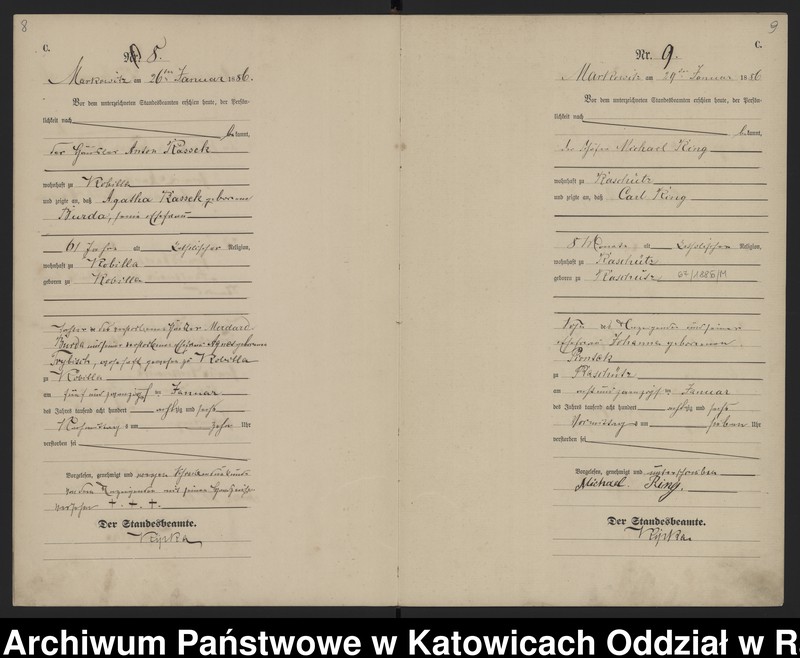 8
C.
Nr. 8.
Markowitz am 26ten Januar 1886.
Vor dem unterzeichneten Standesbeamten erschien heute, der Persön-
lichkeit nach
bekannt,
der Häusler Anton Kassek
wohnhaft zu Kobilla
und zeigte an, daß Agatha Kassek geborene
Burda, seine Ehefrau
61 Jahre alt katholischer Religion,
wohnhaft zu Kobilla
geboren zu Kobilla
Tochter des verstorbenen Häusler
Burda und seiner verstorbenen Ehefrau Agnes geborenen
wohnhaft gewesen zu Kobilla
zu Kobilla
am fünf und zwanzigsten Januar
des Jahres tausend acht hundert achtzig und sechs
Nachmittags um zehn Uhr
verstorben sei
Vorgelesen, genehmigt und wegen Schreibensunkunde
von dem Anzeigenden mit seinem Handzeichen
versehen + + +
Der Standesbeamte.
9
C.
Nr. 9.
Markowitz am 29ten Januar 1886
Vor dem unterzeichneten Standesbeamten erschien heute, der Persön-
lichkeit nach
bekannt,
der Michael Ring
wohnhaft zu Raschütz
und zeigte an, daß Carl Ring
8 Monate alt katholischer Religion,
wohnhaft zu Raschütz
geboren zu Raschütz 67/1885/M
Sohn des Anzeigenden und seiner
Ehefrau Johanna geborenen
zu Raschütz
am acht und zwanzigsten Januar
des Jahres tausend acht hundert achtzig und sechs
Vormittags um sieben Uhr
verstorben sei
Vorgelesen, genehmigt und unterschrieben
Michael Ring.
Der Standesbeamte.
Archiwum Państwowe w Katowicach Oddział w R